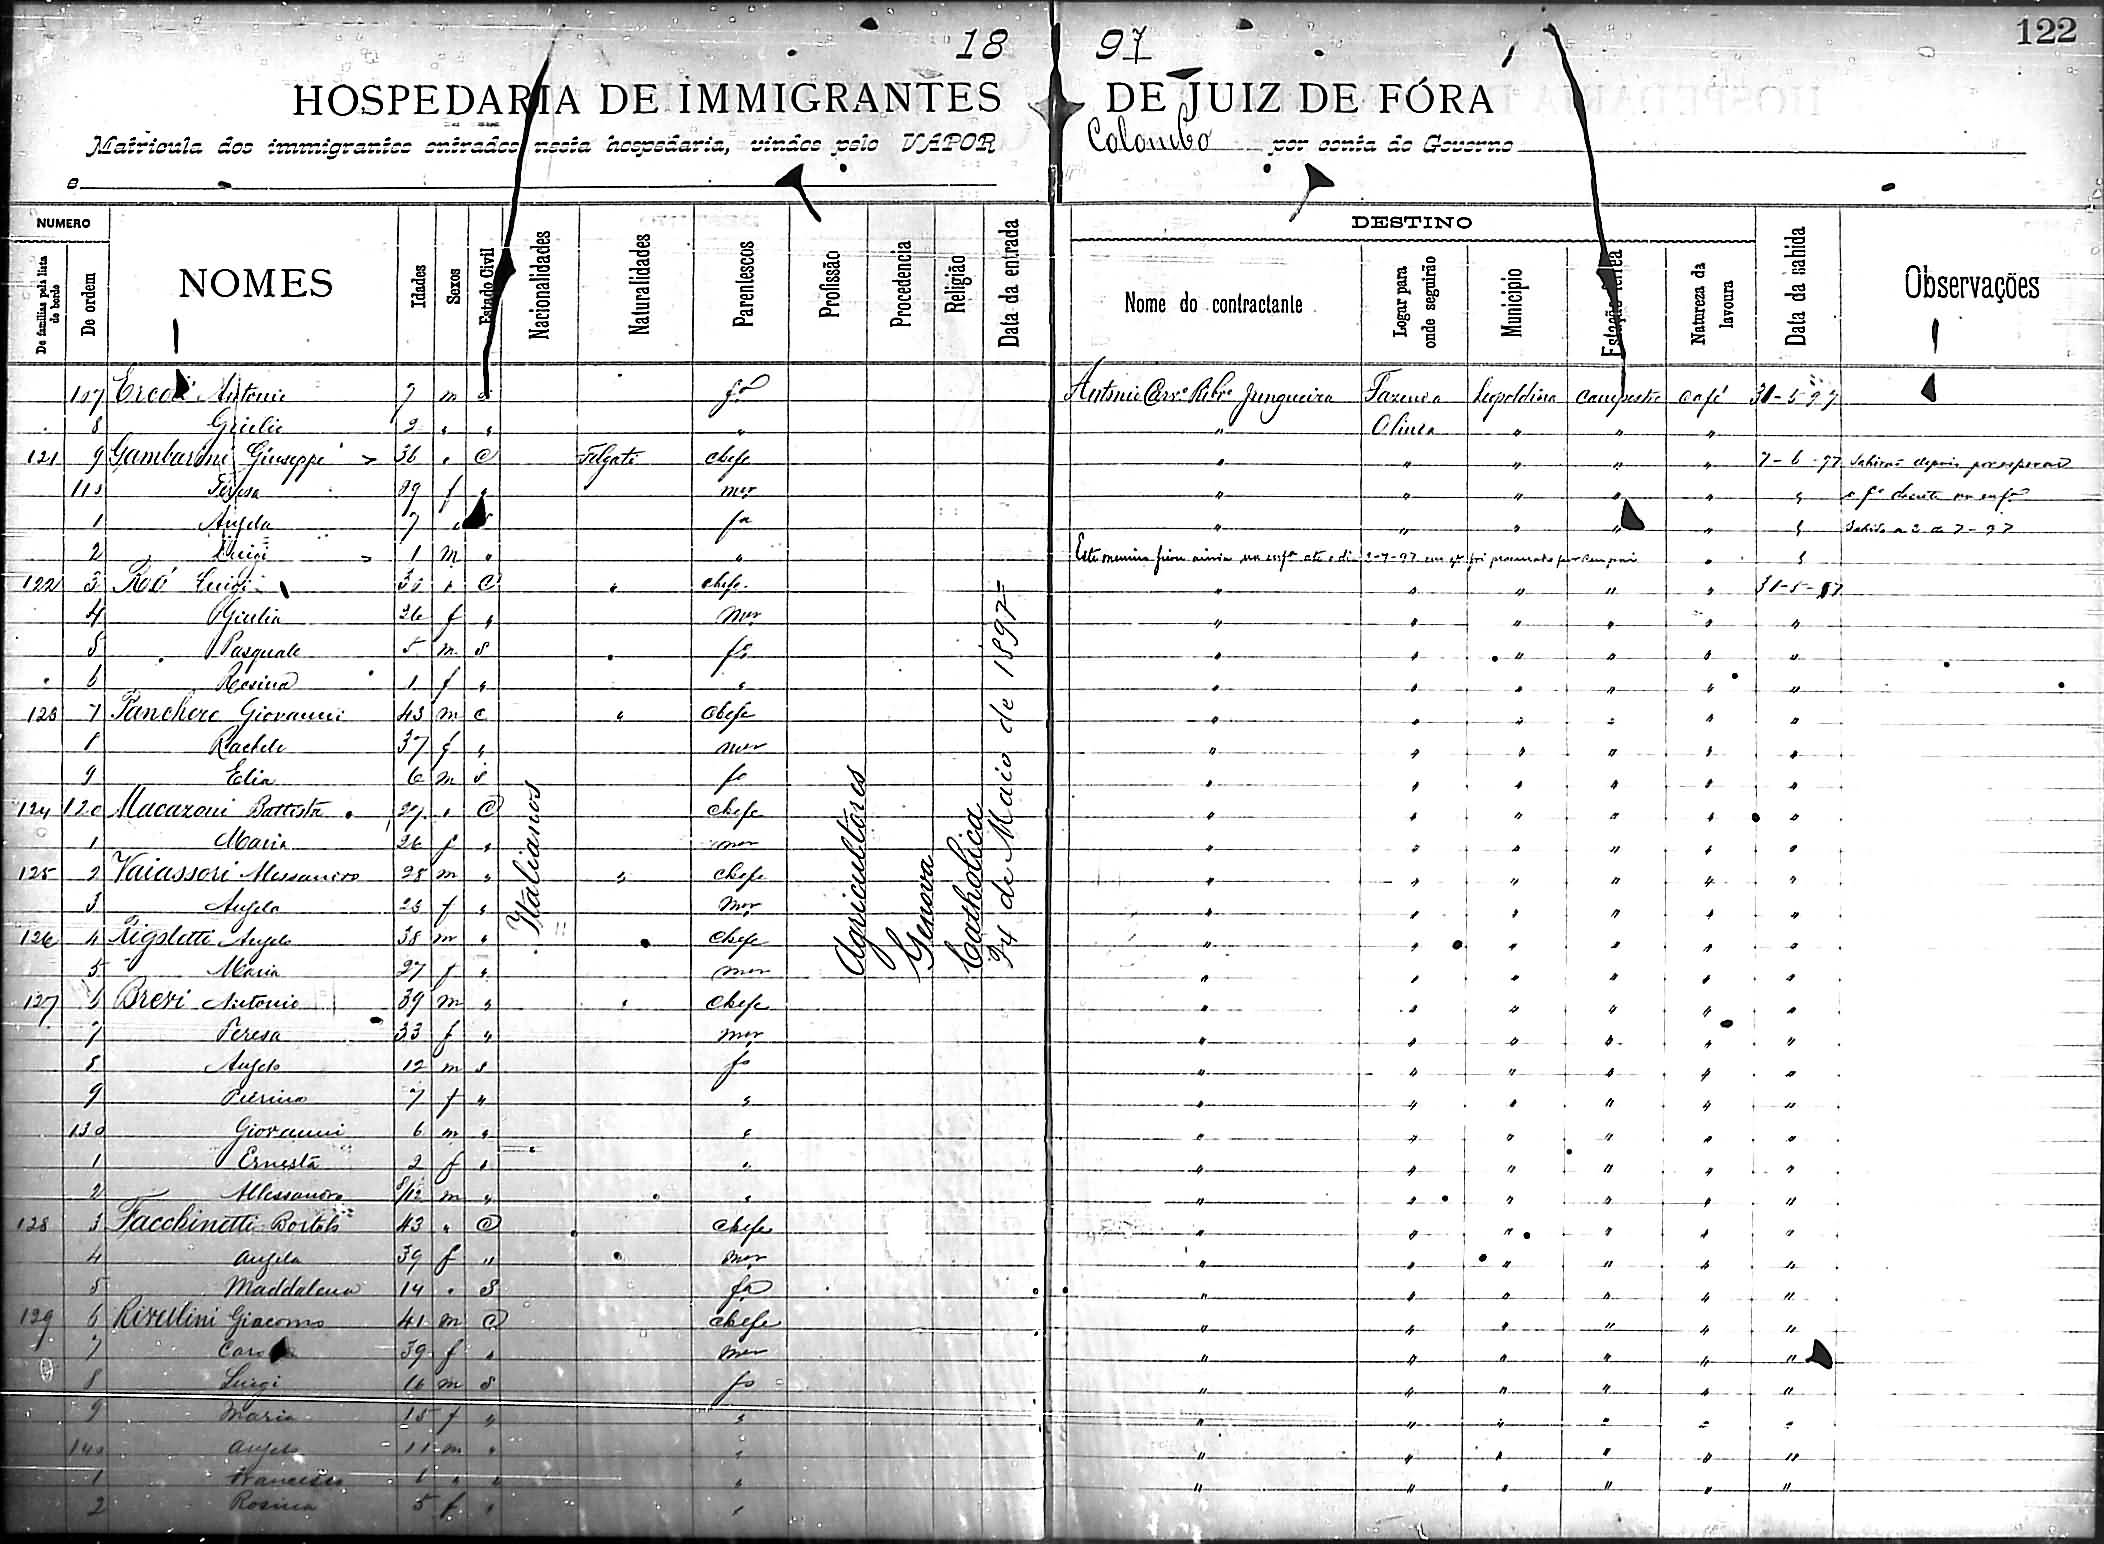 122
18 97
HOSPEDARIA DE IMMIGRANTES DE JUIZ DE FÓRA
Matricula dos immigrantes entrados nesta hospedaria, vindos pelo VAPOR Colombo por conta do Governo
e
NUMERO DESTINO
De familias pela lista de bordo De ordem NOMES Idades Sexos Estado Civil Nacionalidades Naturalidades Parentescos Profissão Procedencia Religião Data da entrada Nome do contractante Logar para onde seguirão Municipio Estação ferrea Natureza da lavoura Data da sahida Observações
Italianos
Agricultores
Genova
Catholica
24 de Maio de 1897
107 Antonio 7 m fo Antonio Carvo Ribro Junqueira Fazenda Leopoldina Campestre Café 31-5-97
8 Giulio 2 " " " " " " "
121 9 Gambarini Giuseppe 36 " C chefe " " " " " 7-6-97 Sahirão depois por
110 Teresa 29 f " mer " " " " " "
1 Angela 7 " fa " " " " " "
2 Luigi 1 m " " Este menino ficou ainda na enfa até o dia 2-7-97 em q foi procurado por seu pai " "
122 3 Luigi " C " chefe " " " " " 31-5-97
4 Giulia 26 f " mer " " " " " "
5 Pasquale 5 m S fo " " " " " "
6 Rosina 1 f " " " " " " " "
123 7 Fanchero Giovanni 43 m C " chefe " " " " " "
8 Rachele 37 f " mer " " " " " "
9 Elia 6 m S fo " " " " " "
124 120 Macazoni Battista 27 " C chefe " " " " " "
1 Maria 26 f " mer " " " " " "
125 2 Vaiassori Alessandro 28 m " " chefe " " " " " "
3 Angela 23 f " mer " " " " " "
126 4 Rigoletti Angelo 38 m " chefe " " " " " "
5 Maria 27 f " mer " " " " " "
127 6 Brevi Antonio 39 m " " chefe " " " " " "
7 Teresa 33 f " mer " " " " " "
8 Angelo 12 m S fo " " " " " "
9 Pierina 7 f " " " " " " " "
130 Giovanni 6 m " " " " " " " "
1 Ernesta 2 f " " " " " " " "
2 Allessandro 8/12 m " " " " " " " "
128 3 Facchinetti Bortolo 43 " C chefe " " " " " "
4 Angela 39 f " mer " " " " " "
5 Maddalena 14 " S fa " " " " " "
129 6 Rivellini Giacomo 41 m C chefe " " " " " "
7 39 f " mer " " " " " "
8 Luigi 16 m S fo " " " " " "
9 Maria 15 f " " " " " " " "
140 Angelo 11 m " " " " " " " "
1 Francesco 6 " " " " " " " " "
2 Rosina 5 f " "